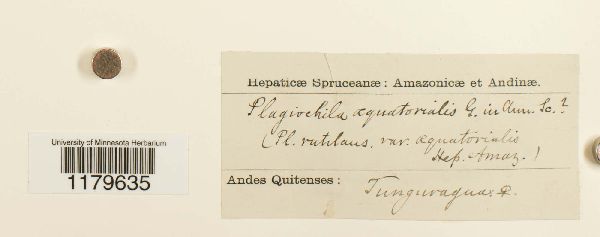 Hepaticæ Spruceanæ: Amazonicæ et Andinæ.
Plagiochila æquatorialis G. in Ann. Sc.?
(Pl. rutilans, var. æquatorialis
Hep. Amaz.)
University of Minnesota Herbarium
1179635
Andes Quitenses:
Tunguragua: ♀.